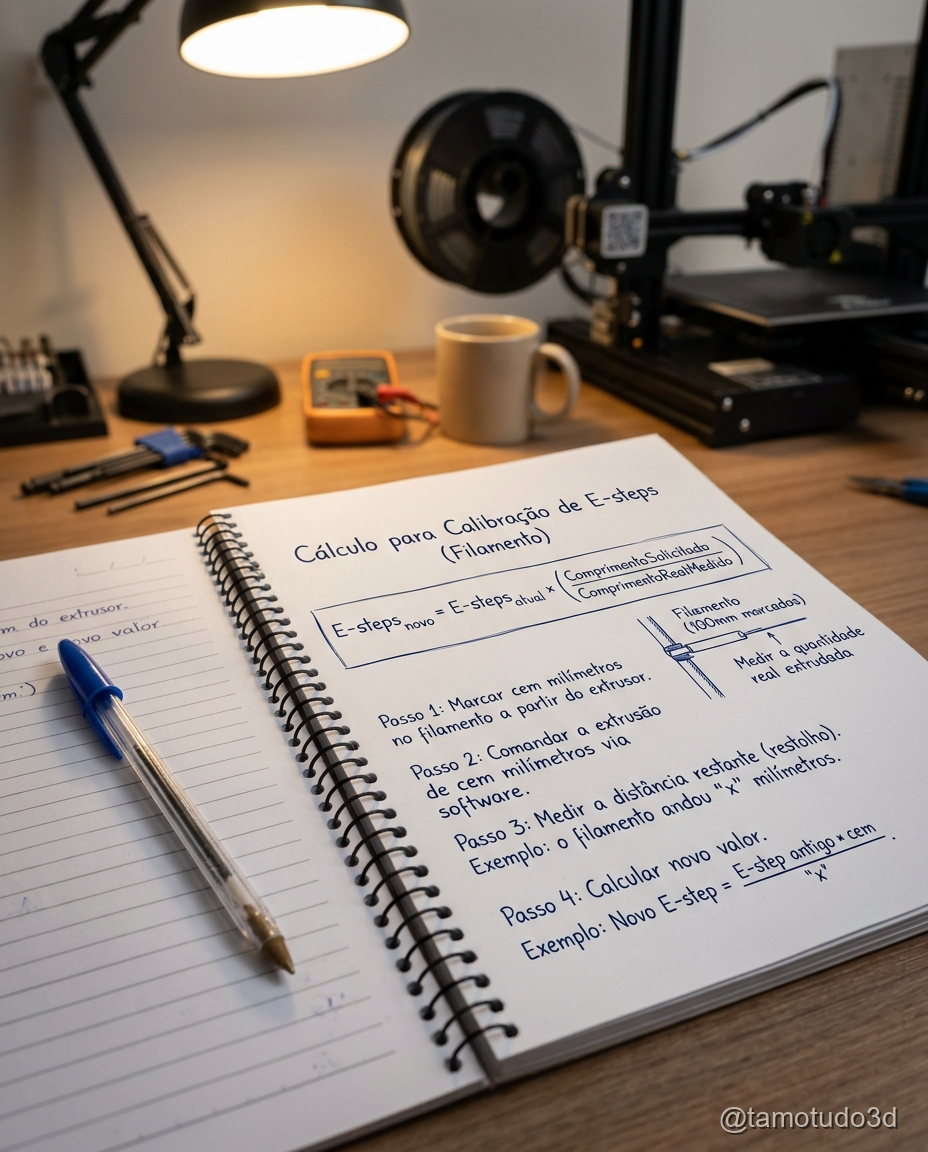 Cálculo para Calibração de E-steps
(Filamento)
E-steps novo = E-steps atual × (ComprimentoSolicitado / ComprimentoRealMedido)
Filamento
(100mm marcados)
Medir a quantidade
real extrudada
Passo 1: Marcar cem milímetros
no filamento a partir do extrusor.
Passo 2: Comandar a extrusão
de cem milímetros via
software.
Passo 3: Medir a distância restante (restolho).
Exemplo: o filamento andou "x" milímetros.
Passo 4: Calcular novo valor.
Exemplo: Novo E-step = E-step antigo * cem / "x" .
do extrusor.
e novo valor
@tamotudo3d